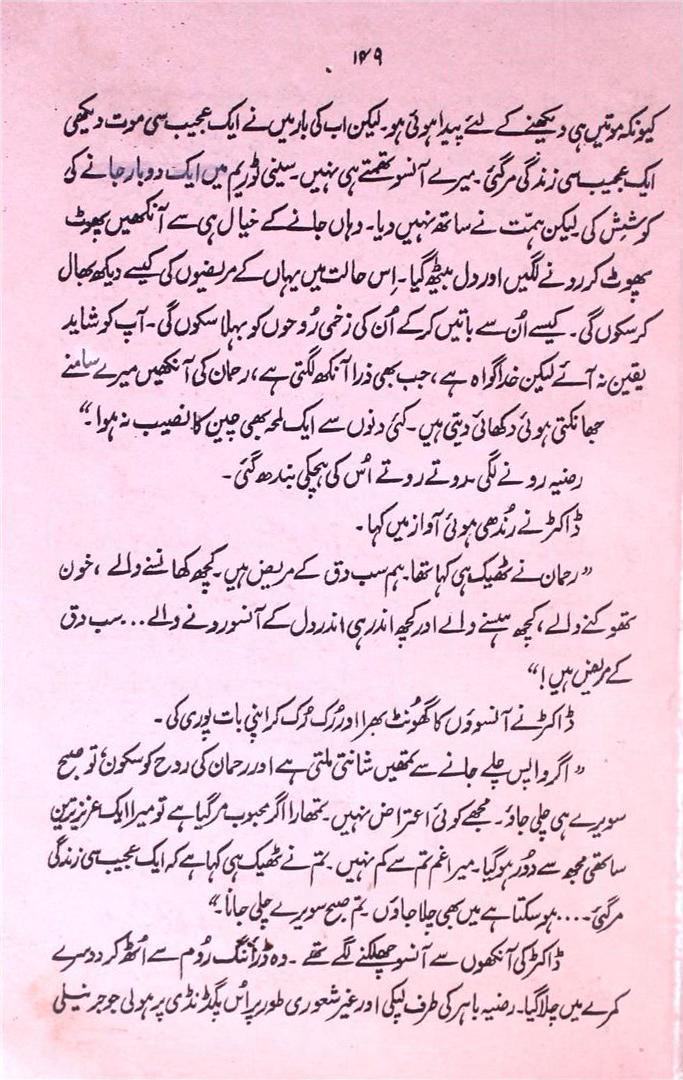 ۱۴۹
کیونکہ موتیں ہی دیکھنے کے لئے پیدا ہوئی ہو۔ لیکن اب کی بار میں نے ایک عجیب سی موت دیکھی
ایک عجیب سی زندگی مر گئی۔ میرے آنسو تھمتے ہی نہیں۔ سینی ٹوریم میں ایک دو بار جانے کی
کوشش کی لیکن ہمّت نے ساتھ نہیں دیا۔ وہاں جانے کے خیال ہی سے آنکھیں پھوٹ
پھوٹ کر رونے لگیں اور دل بیٹھ گیا۔ اِس حالت میں یہاں کے مریضوں کی کیسے دیکھ بھال
کر سکوں گی۔ کیسے اُن سے باتیں کر کے اُن کی زخمی رُوحوں کو بہلا سکوں گی۔ آپ کو شاید
یقین نہ آئے لیکن خدا گواہ ہے، جب بھی ذرا آنکھ لگتی ہے، رحمان کی آنکھیں میرے سامنے
جھانکتی ہوئی دکھائی دیتی ہیں۔ کئی دنوں سے ایک لمحہ بھی چین کا نصیب نہ ہوا۔“
رضیہ رونے لگی۔ روتے روتے اُس کی ہچکی بندھ گئی۔
ڈاکٹر نے رُندھی ہوئی آواز میں کہا۔
”رحمان نے ٹھیک ہی کہا تھا۔ ہم سب دق کے مریض ہیں۔ کچھ کھانسنے والے، خون
تھوکنے والے، کچھ ہنسنے والے اور کچھ اندر ہی اندر دل کے آنسو رونے والے... سب دق
کے مریض ہیں!“
ڈاکٹر نے آنسوؤں کا گھونٹ بھرا اور رُک رُک کر اپنی بات پوری کی۔
”اگر واپس چلے جانے سے تمھیں شانتی ملتی ہے اور رحمان کی روح کو سکون، تو صبح
سویرے ہی چلی جاؤ۔ مجھے کوئی اعتراض نہیں۔ تمھارا اگر محبوب مر گیا ہے تو میرا ایک عزیز ترین
ساتھی مجھ سے دُور ہو گیا۔ میرا غم تم سے کم نہیں۔ تم نے ٹھیک ہی کہا ہے کہ ایک عجیب سی زندگی
مر گئی۔... ہو سکتا ہے میں بھی چلا جاؤں۔ تم صبح سویرے چلی جانا۔“
ڈاکٹر کی آنکھوں سے آنسو چھلکنے لگے تھے۔ وہ ڈرائنگ رُوم سے اُٹھ کر دوسرے
کمرے میں چلا گیا۔ رضیہ باہر کی طرف لپکی اور غیر شعوری طور پر اُس پگڈنڈی پر ہولی جو جرنیلی